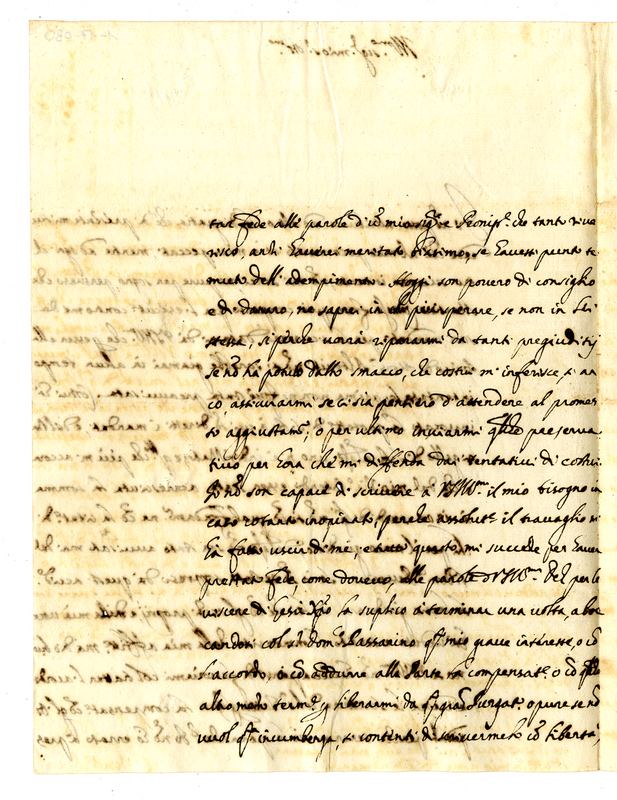 tar fede alle parole d'un mio sig.re e Pronip.e che tanto rive
risco, anzi l'haverei meritato benissimo, se havessi punto te
muto dell'adempimento. Hoggi son povero di consiglio
e di danaro, ne saprei in chi più sperare, se non in Lei
stessa, si perche vorrà riposarmi da tanti pregiuditij
se nõ ha potuto dallo smacco, che costui m'inferisce, si an
co assicurarmi se ci sia pensiero d'attendere al promes
so aggiustam.to, ò per ultimo inviarmi qualche preserva
tivo per hora che mi diffenda dai tentativi di costui.
Io nõ son capace di scrivere à VS Ill.ma il mio bisogno in
caso cotanto inopinato, perche il travaglio mi
hà fatto uscir di me, e tutto questo mi succede per haver
prestato fede, come dovevo, alle parole di VS Ill.ma Del per le
viscere di Gesù Xpõ la suplico à terminar una volta, a boc
candosi col s.r Dom.co Passarino q.sto mio grave interesse, o cõ
l'accordo, o cõ addurre alla Parte la compensat.e o cõ qualche
altro mezo term.e e liberarmi da q.sto gran Purgat.o o pure se nõ
vuol q.sta incumbenza, si contenti di scrivermelo cõ libertà,